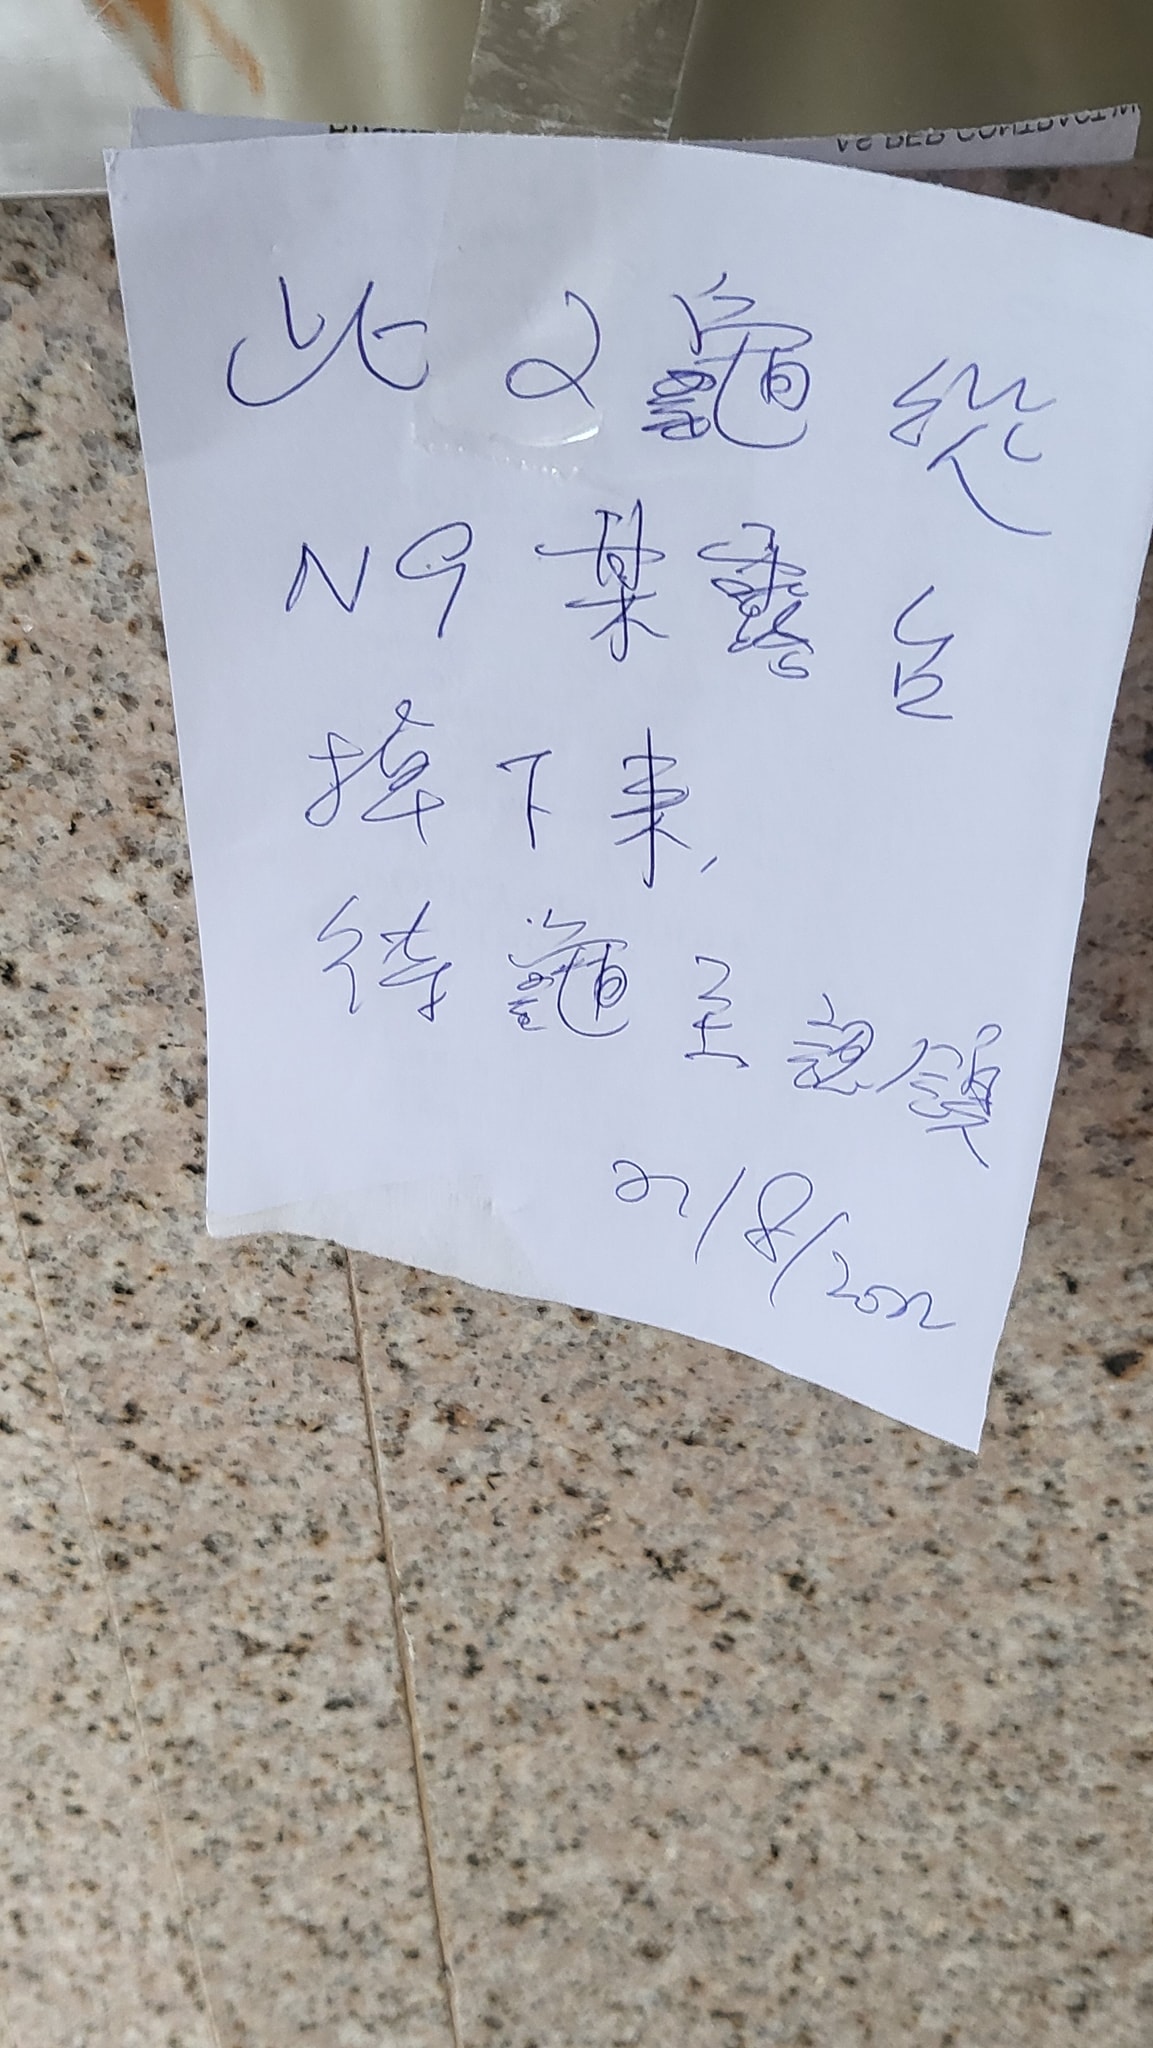 此2龜從
N9某露台
掉下來,
待龜主認領
21/8/2022